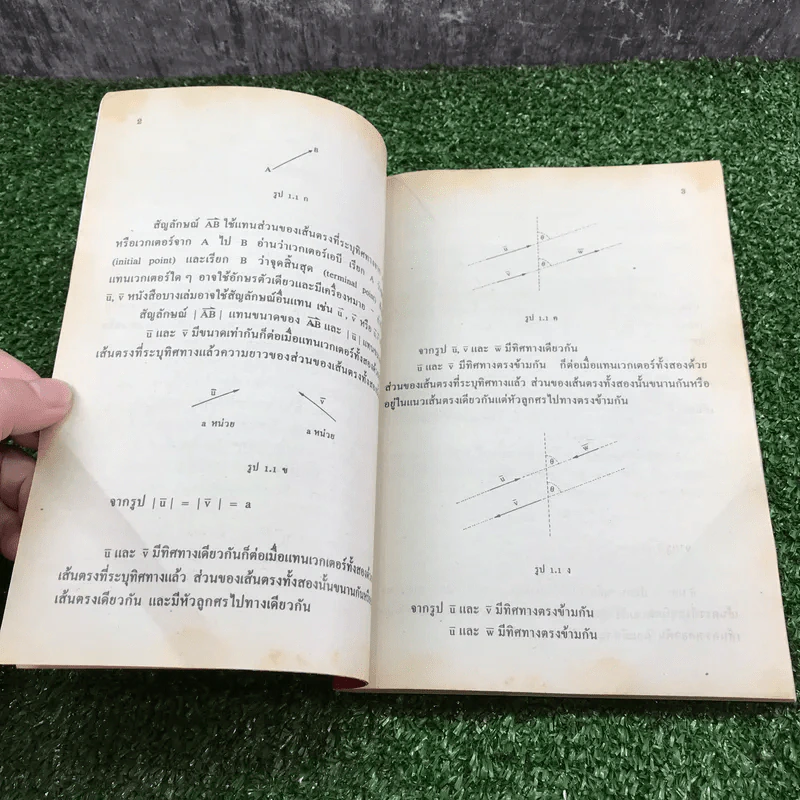 2
B
A
รูป 1.1 ก
สัญลักษณ์ A̅B̅ ใช้แทนส่วนของเส้นตรงที่ระบุทิศทาง
หรือเวกเตอร์จาก A ไป B อ่านว่าเวกเตอร์เอบี เรียก A
(initial point) และเรียก B ว่าจุดสิ้นสุด (terminal point)
แทนเวกเตอร์ใด ๆ อาจใช้อักษรตัวเดียวและมีเครื่องหมาย –
u̅, v̅ หนังสือบางเล่มอาจใช้สัญลักษณ์อื่นแทน เช่น u̅, v̅ หรือ
สัญลักษณ์ |A̅B̅| แทนขนาดของ A̅B̅ และ |u̅|
u̅ และ v̅ มีขนาดเท่ากันก็ต่อเมื่อแทนเวกเตอร์ทั้งสองด้วย
เส้นตรงที่ระบุทิศทางแล้วความยาวของส่วนของเส้นตรงทั้งสอง
u̅ v̅
a หน่วย a หน่วย
รูป 1.1 ข
จากรูป |u̅| = |v̅| = a
u̅ และ v̅ มีทิศทางเดียวกันก็ต่อเมื่อแทนเวกเตอร์ทั้งสองด้วย
เส้นตรงที่ระบุทิศทางแล้ว ส่วนของเส้นตรงทั้งสองนั้นขนานกันหรือ
เส้นตรงเดียวกัน และมีหัวลูกศรไปทางเดียวกัน
3
u̅ θ w̅
v̅ θ
รูป 1.1 ค
จากรูป u̅, v̅ และ w̅ มีทิศทางเดียวกัน
u̅ และ v̅ มีทิศทางตรงข้ามกัน ก็ต่อเมื่อแทนเวกเตอร์ทั้งสองด้วย
ส่วนของเส้นตรงที่ระบุทิศทางแล้ว ส่วนของเส้นตรงทั้งสองนั้นขนานกันหรือ
อยู่ในแนวเส้นตรงเดียวกันแต่หัวลูกศรไปทางตรงข้ามกัน
u̅ θ w̅
v̅ θ
รูป 1.1 ง
จากรูป u̅ และ v̅ มีทิศทางตรงข้ามกัน
u̅ และ w̅ มีทิศทางตรงข้ามกัน